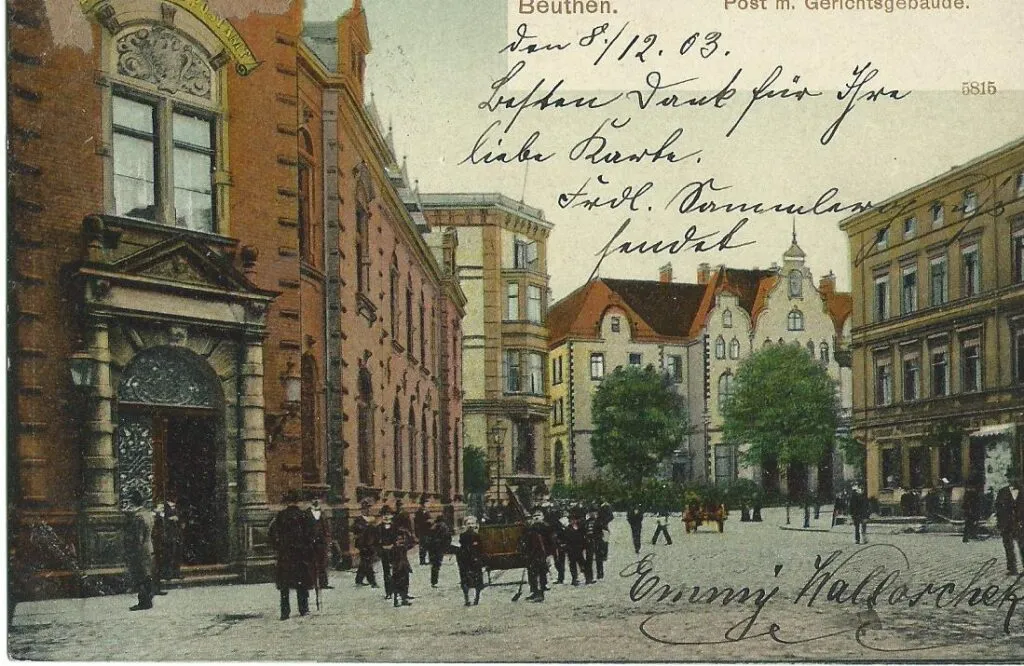 Beuthen. Post m. Gerichtsgebäude.
den 8./12. 03.
5815
Besten Dank für Ihre
liebe Karte.
Frdl. Sammlergruß
sendet
Emmy Walloschek